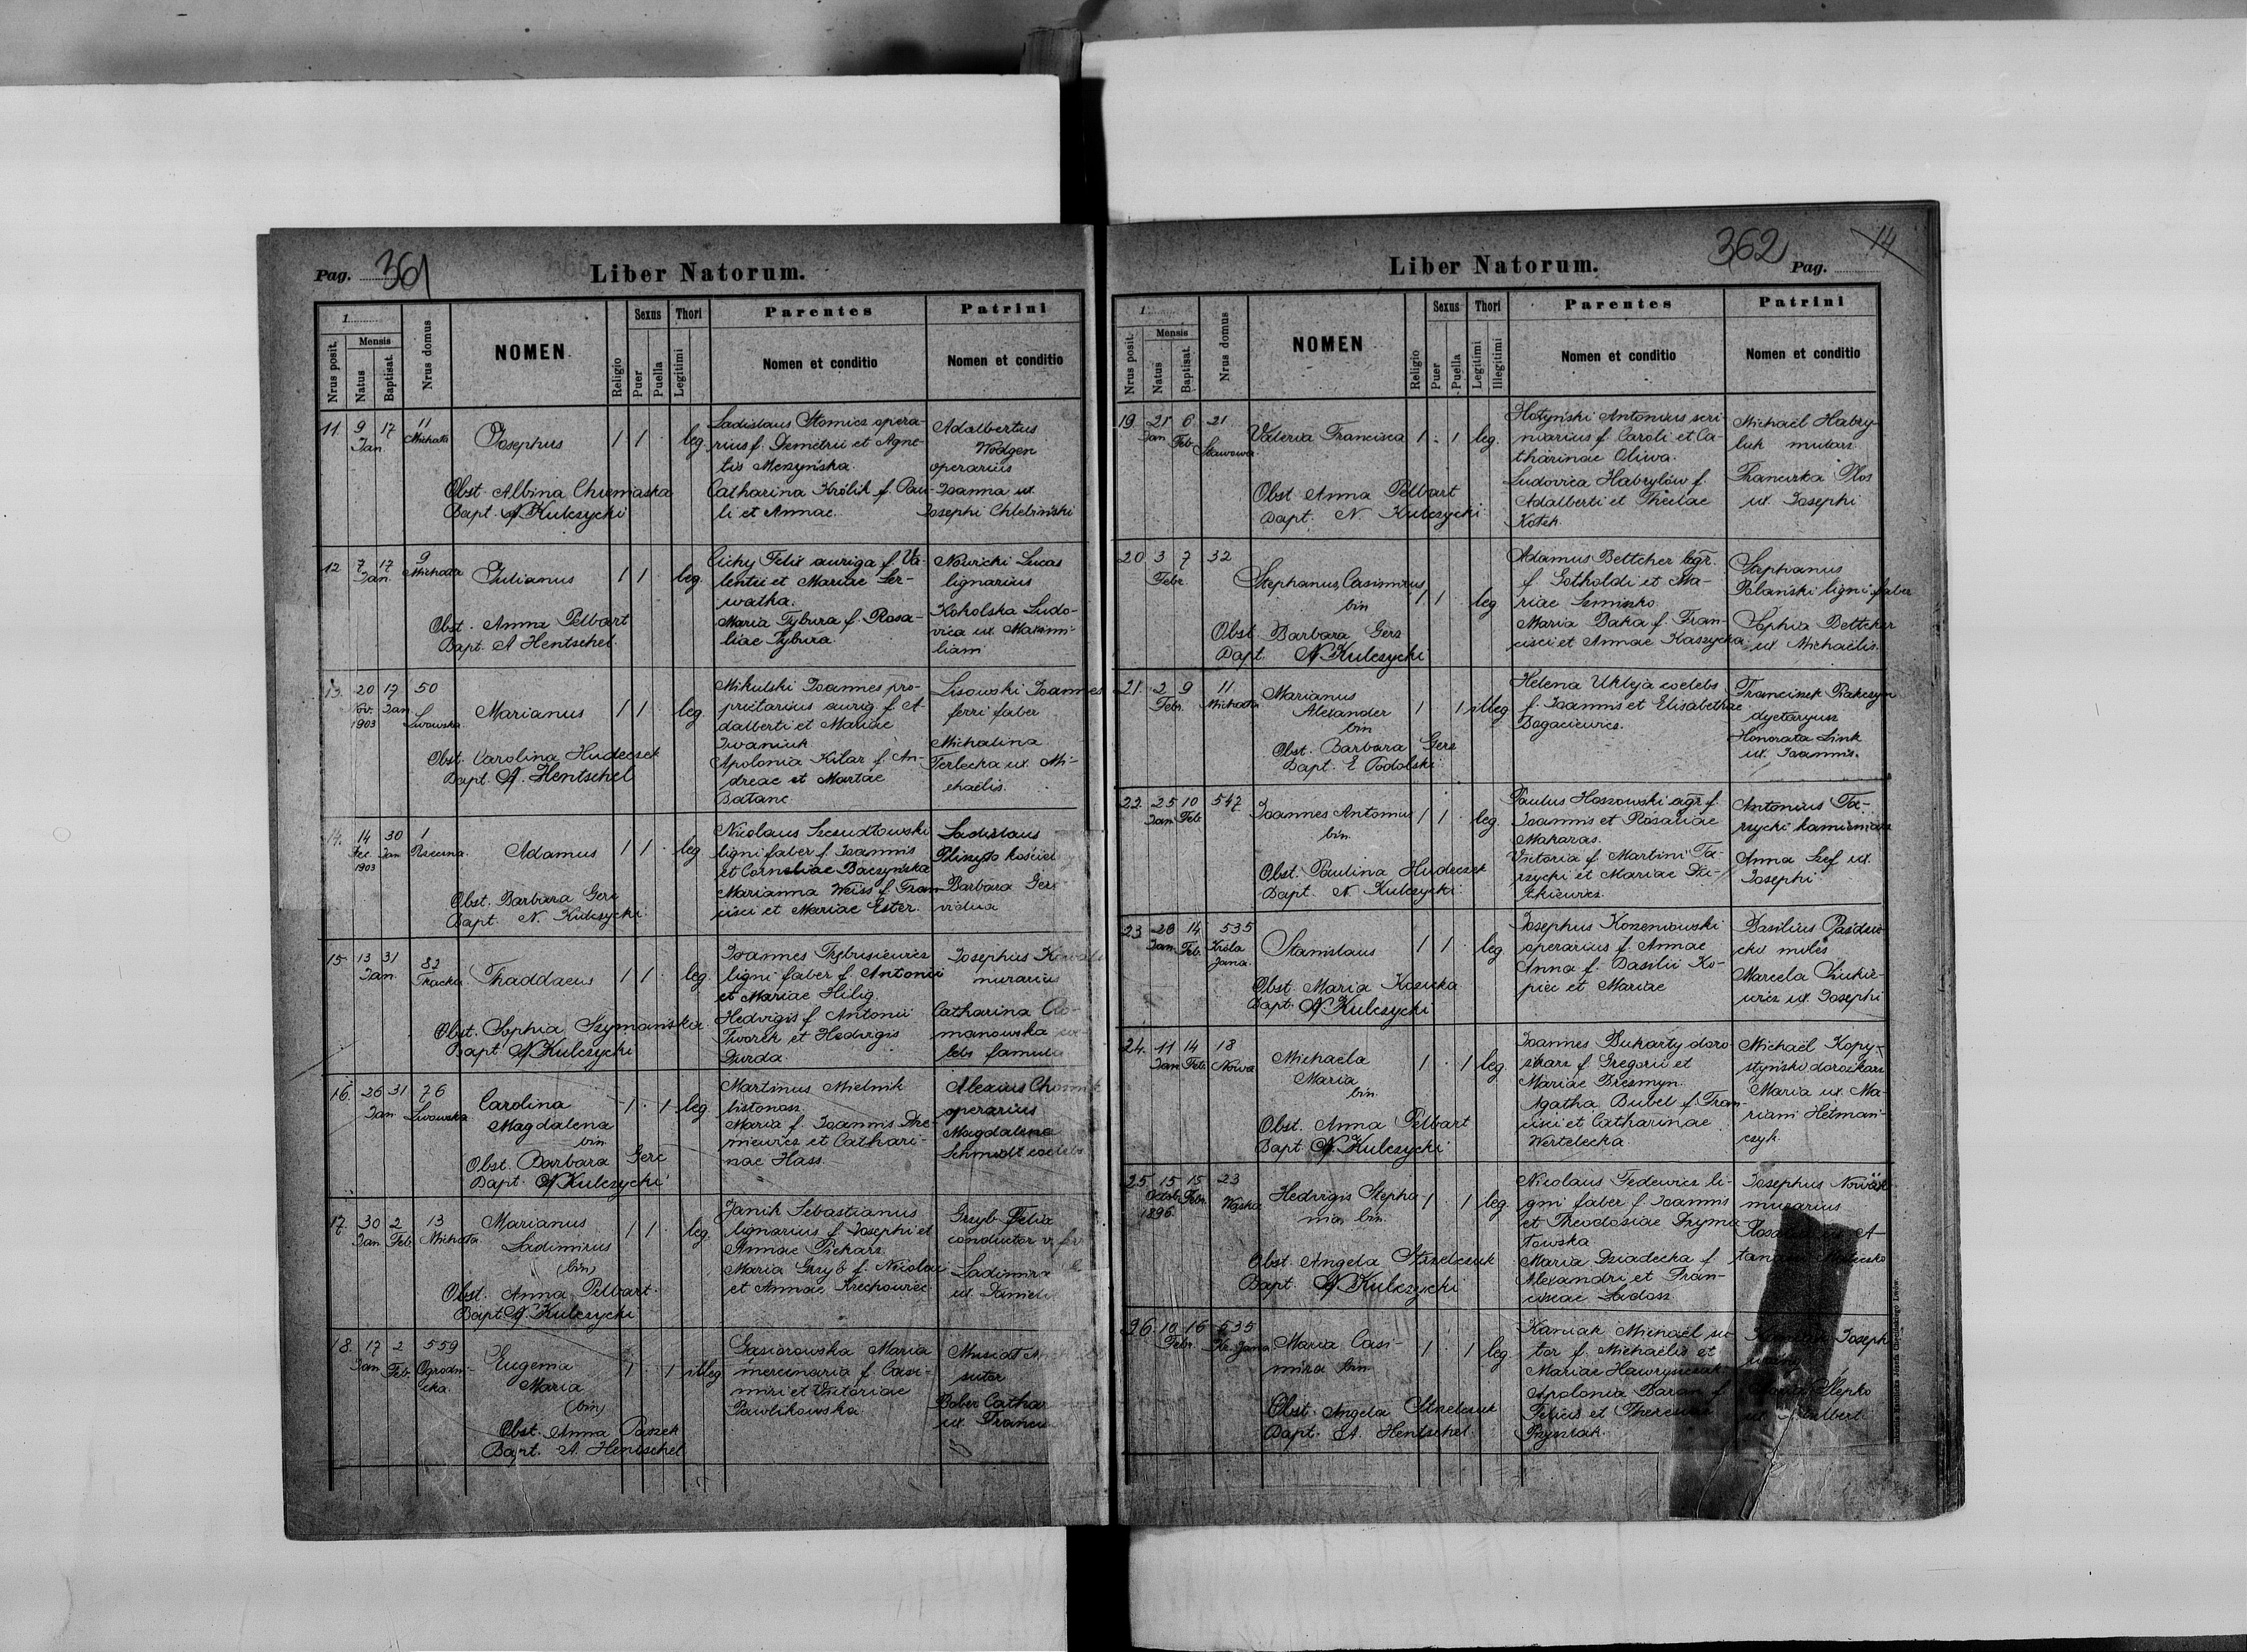 Pag. 361
Liber Natorum.
1
Nrus posit.
Mensis
Natus
Baptisat.
Nrus domus
NOMEN
Religio
Sexus
Puer
Puella
Thori
Legitimi
Parentes
Nomen et conditio
Patrini
Nomen et conditio
11. 9 Jan 17 11 Michała
Josephus
1 1 leg
Obst. Albina
Bapt. N Kulczycki
Ladislaus Stomicz opera-
rius f. Demetrii et Agne-
tis Meszyńska
Catharina Królik f. Pau-
li et Annae.
Adalbertus
Wodgen
operarius
Joanna ux.
Josephi Chlebiński
12 7 Jan. 17 9 Michała
Julianus
1 1 leg.
Obst. Anna Pelbart
Bapt. A Hentschel
Cichy Felix auriga f. Va-
lentii et Mariae Ser-
watka.
Maria Tybura f. Rosa-
liae Tybura.
Nowicki Lucas
lignarius
Kokolska Ludo-
vica ux. Maximi-
liani
13. 20 Nov. 1903 17 Jan 50 Lwowska
Marianus
1 1 leg.
Obst. Carolina Hudeczek
Bapt. A. Hentschel
Mikulski Joannes pro-
prietarius aurig f. A-
dalberti et Mariae
Iwaniuk
Apolonia Kilar f. An-
dreae et Martae
Batanc
Lisowski Joannes
ferri faber
Michalina
Terlecka ux. Mi-
chaëlis.
14. 14 Dec. 1903 30 Jan 1
Adamus
1 1 leg
Obst. Barbara Gerc
Bapt. N. Kulczycki
Nicolaus Szczudłowski
ligni faber f. Joannis
et Corneliae Baczyńska
Marianna Weiss f. Fran-
cisci et Mariae Ester.
Ladislaus
Barbara
vidua
15. 13 31 Jan. 82
Thaddaeus
1 1 leg.
Obst. Sophia Szymańska
Bapt. N Kulczycki
Joannes Trybusiewicz
ligni faber f. Antonii
et Mariae Hilig.
Hedvigis f. Antonii
Tworek et Hedvigis
Durda.
Josephus
murarius
Catharina
manowska
lebs famula
16. 26 Jan 31 76 Lwowska
Carolina
Magdalena
bin
1 1 leg
Obst. Barbara Gerc
Bapt. N Kulczycki
Martinus Mielnik
listonosz
Maria f. Joannis
niewicz et Cathari-
nae Hass.
Alexius
operarius
Magdalena
Schmidt coelebs
17. 30 Jan 2 Feb 13 Michała
Marianus
Ladimirus
(bin)
1 1 leg.
Obst. Anna Pelbart.
Bapt. N. Kulczycki
Janik Sebastianus
lignarius f. Josephi et
Annae Piekarz
Maria Grzyb f. Nicolai
et Annae Krechowiec
Grzyb Felix
conductor
Ladimira
ux. Danieli
18. 17 Jan 2 Feb. 559 Ogrodni-
cka.
Eugenia
Maria
(bin)
1 1 illeg
Obst. Anna Paszek
Bapt. A. Hentschel
Gąsiorowska Maria
mercenaria f. Casi-
miri et Victoriae
Pawlikowska
sutor
Bober Cathar
ux. Francis
Liber Natorum.
362 Pag. 14
1
Nrus posit.
Mensis
Natus
Baptisat.
Nrus domus
NOMEN
Religio
Sexus
Puer
Puella
Thori
Legitimi
Illegitimi
Parentes
Nomen et conditio
Patrini
Nomen et conditio
19 21 Jan 6 Feb. 21 Stawowa
Valeria Francisca
1 1 leg.
Obst Anna Pelbart
Bapt. N. Kulczycki
Hotyński Antonius scri-
niarius f. Caroli et Ca-
tharinae Oliwa.
Ludovica Habrylów f.
Adalberti et Theclae
Kotek.
Michaël Habry-
luk mularz.
Franciszka Plos
ux Josephi
20 3 7 Febr. 32
Stephanus, Casimirus
bin
1 1 leg
Obst Barbara Gerz
Bapt. N Kulczycki
Adamus Bettcher agr.
f. Gotholdi et Ma-
riae Szmiszko.
Maria Baka f. Fran-
cisci et Annae Kaszycka
Stephanus
Polański ligni faber
Sophia Bettcher
ux Michaëlis.
21. 2 9 Febr. 11 Michała
Marianus
Alexander
bin
1 1 illeg
Obst. Barbara Gerz
Bapt. E Podolski
Helena Uhlyja coelebs
f. Joannis et Elisabethae
Bogaciewicz.
Franciszek
dyetaryusz
Honorata Link
ux. Joannis.
22. 25 Jan 10 Feb. 547
Joannes Antonius
bin.
1 1 leg.
Obst. Paulina Hudeczek
Bapt. N. Kulczycki
Paulus Hoszowski agr f.
Joannis et Rosaliae
Makaras.
Victoria f. Martini Ta-
rzycki et Mariae
Antonius Ta-
rzycki kamieniarz
Anna Szef ux.
Josephi
23 28 Jan. 14 Feb. 535 Króla
Jana.
Stanislaus
1 1 leg
Obst Maria Kosicka
Bapt. N Kulczycki
Josephus Korzeniowski
operarius f. Annae
Anna f. Basilii Ko-
piec et Mariae
Basilius
miles
Marcela
wicz ux. Josephi
24. 11 Jan 14 Feb. 18 Nowa
Michaela
Maria
bin.
1 1 leg.
Obst. Anna Pelbart
Bapt. N. Kulczycki
Joannes Bukarty doro-
żkarz f Gregorii et
Mariae Brezmyn.
Agatha Bubel f. Fran-
cisci et Catharinae
Wertelecka.
Michaël Kopy-
styński dorożkarz
Maria ux. Ma-
riani Hetmań-
czyk.
25 15 Octob. 1896 15 Febr. 23 Wąska
Hedvigis Stepha-
nia bin.
1 1 leg
Obst. Angela Strzelczuk
Bapt. N Kulczycki
Nicolaus Fedewicz li-
gni faber f. Joannis
et Theodosiae Dryma-
łowska
Maria Dziadecka f.
Alexandri et Fran-
ciscae Ladosz.
Josephus Nowak
murarius
26. 10 16 Febr. 535 Kr. Jana
Maria Casi-
mira bin
1 1 leg
Obst. Angela Strzelczuk
Bapt. A. Hentschel.
Kaniak Michaël su-
tor f. Michaëlis et
Mariae Hawryszczak
Apolonia Baran f.
Felicis et Theresiae
Joseph